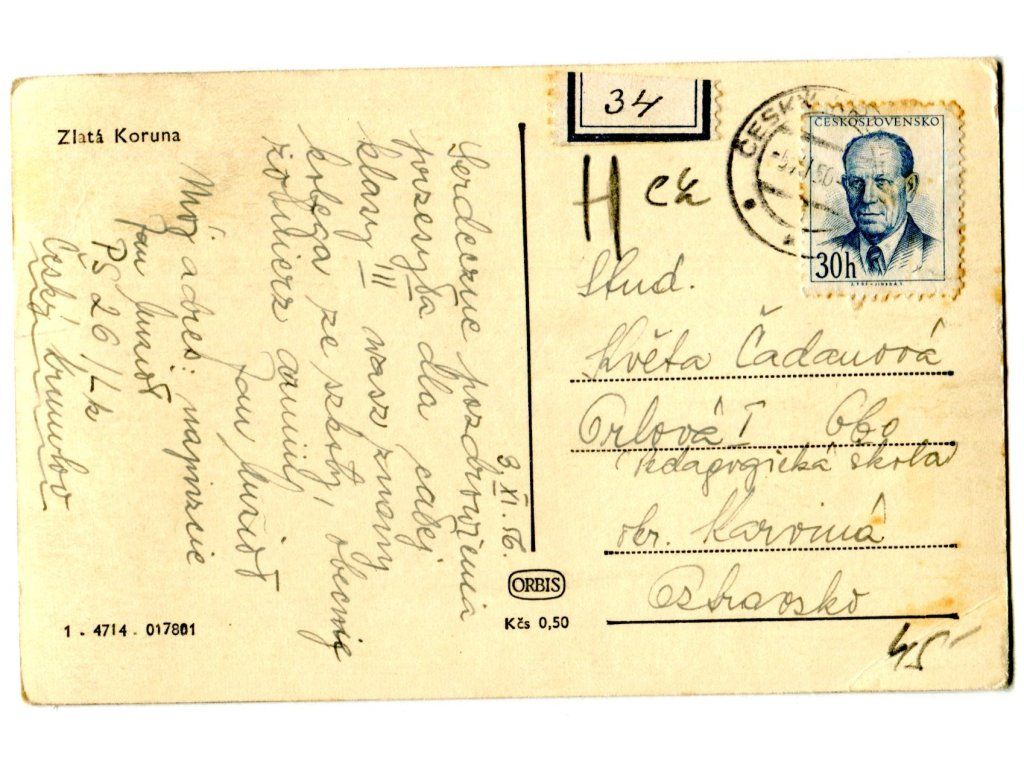 Zlatá Koruna
34
H ck
ČESKÝ
ČESKOSLOVENSKO
30h
Serdeczne pozdrowienia
przesyła dla całej
klasy III wasz znany
kolega ze szkoły, obecnie
żołnierz armii,
Jan
Mój adres: napiszcie
Jan
PS 26/Lk
Český Krumlov
3. XI. 56.
Stud.
Květa Čadanová
Orlová I 660
Pedagogická škola
okr. Karviná
Ostravsko
ORBIS
Kčs 0,50
1 - 4714 - 017801
45